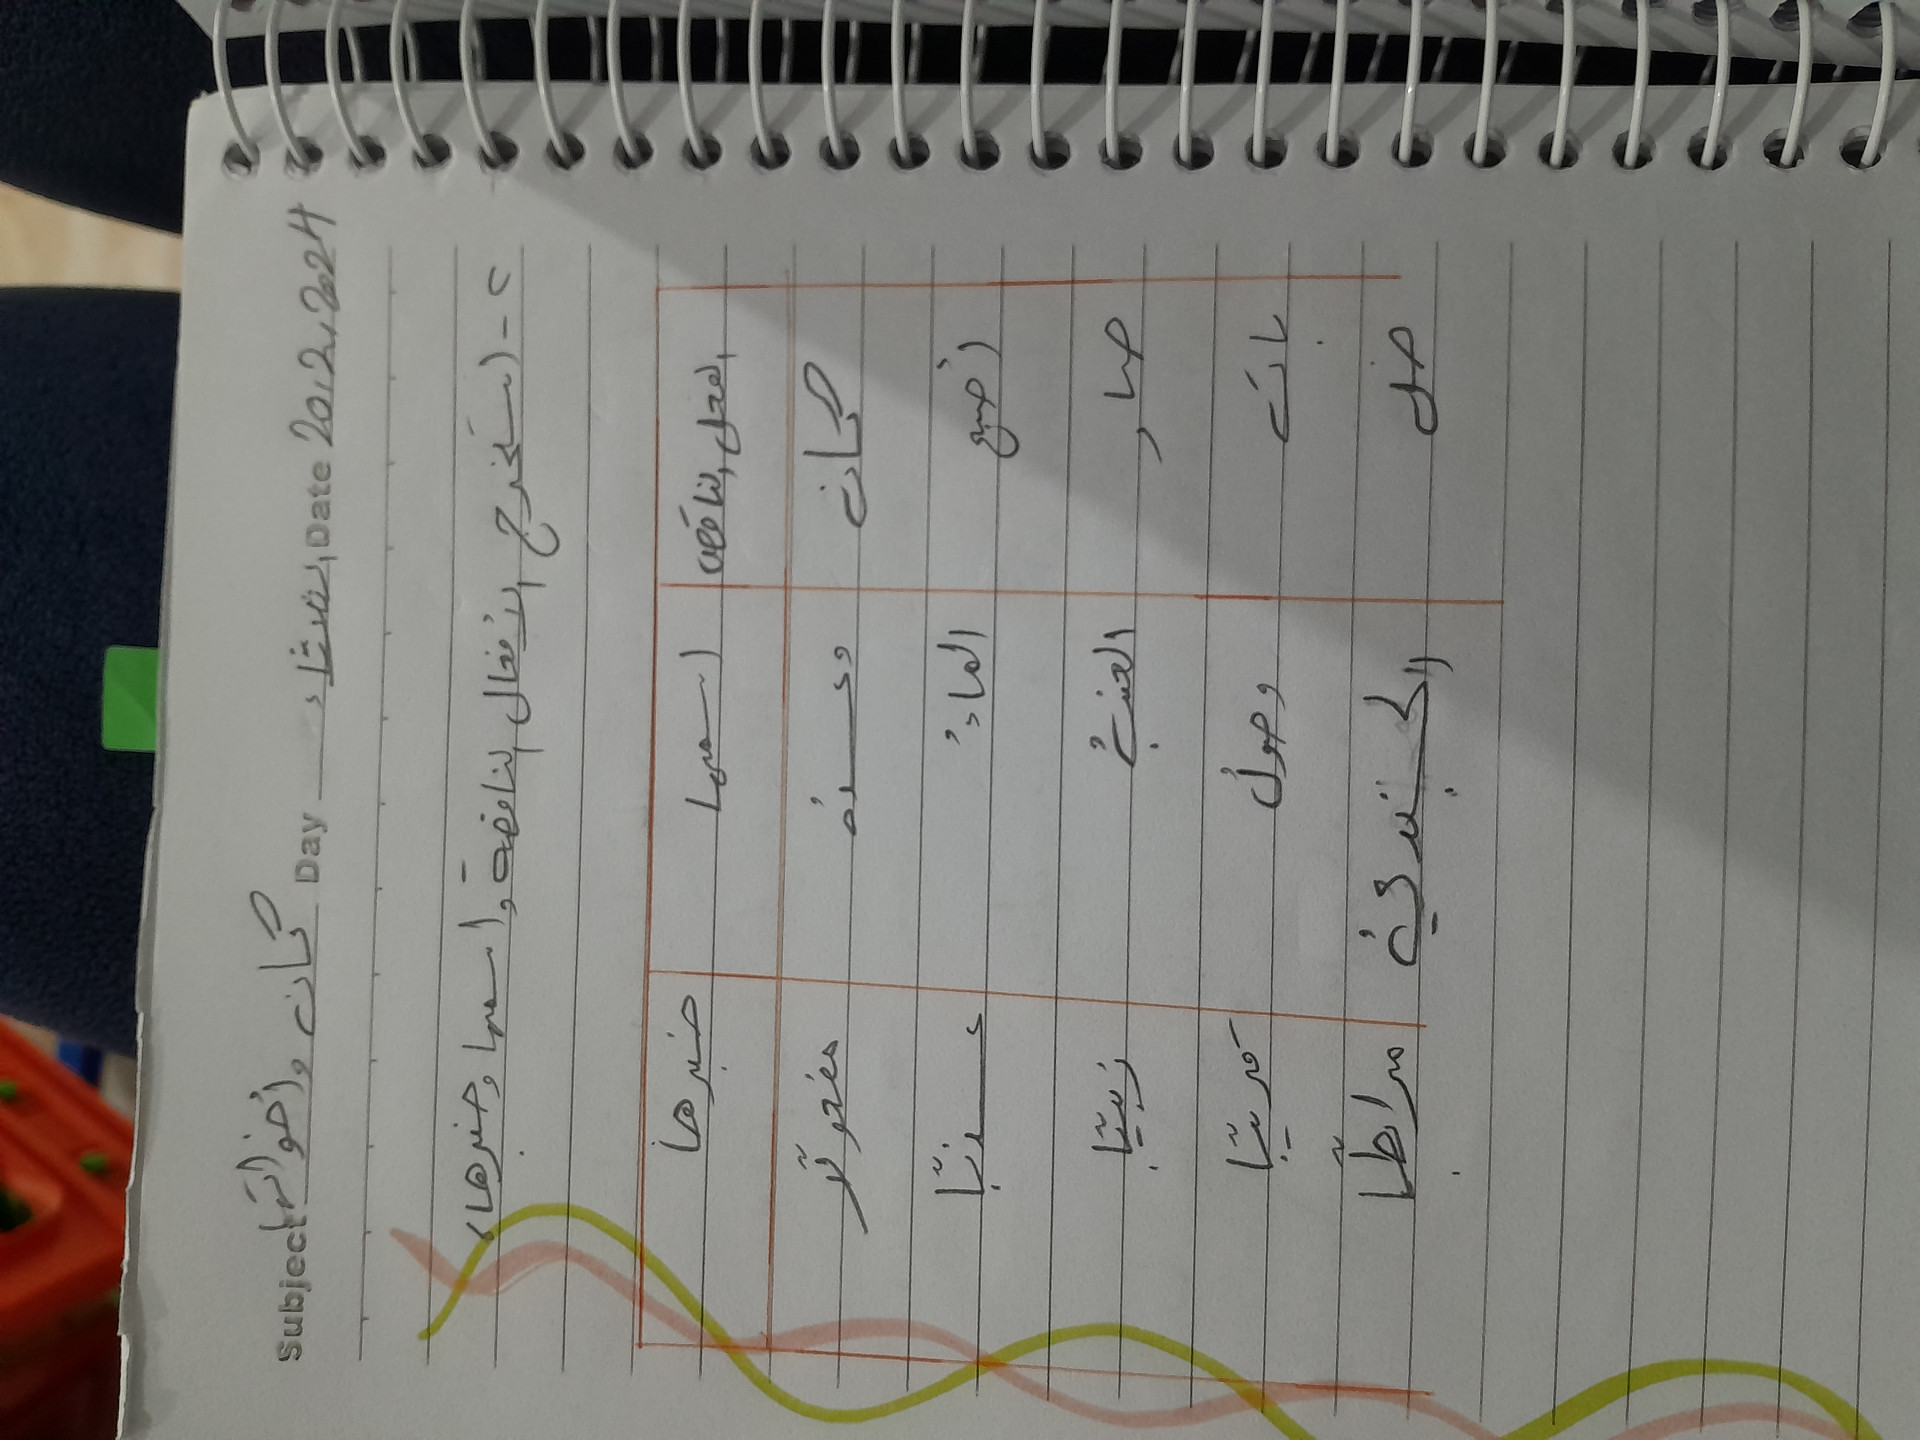 Subject كان وأخواتها Day الثلاثاء Date 20,2,2024
٢- استخرج الأفعال الناقصة، واسمها وخبرها،
الفعل الناقص اسمها خبرها
كان وعده مفعولًا
أصبح الماءُ عذبًا
صار العنبُ زبيبًا
باتَ وصولُ قريبًا
ضل الجنديُ مرابطًا